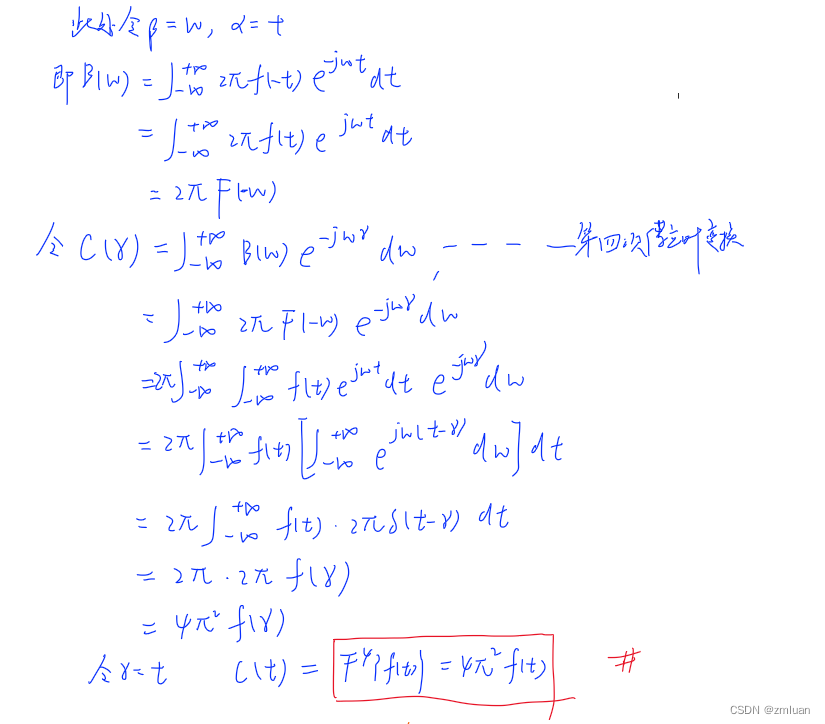 此处令β=w, α=t
即 B(w) = ∫_{-∞}^{+∞} 2π f(-t) e^{-jwt} dt
= ∫_{-∞}^{+∞} 2π f(t) e^{jwt} dt
= 2π F(-w)
令 C(γ) = ∫_{-∞}^{+∞} B(w) e^{-jwγ} dw, - - - — 第四次傅立叶变换
= ∫_{-∞}^{+∞} 2π F(-w) e^{-jwγ} dw
= 2π ∫_{-∞}^{+∞} ∫_{-∞}^{+∞} f(t) e^{jwt} dt e^{-jwγ} dw
= 2π ∫_{-∞}^{+∞} f(t) [∫_{-∞}^{+∞} e^{jw(t-γ)} dw] dt
= 2π ∫_{-∞}^{+∞} f(t) · 2π δ(t-γ) dt
= 2π · 2π f(γ)
= 4π² f(γ)
令γ=t C(t) = F⁴{f(t)} = 4π² f(t) #
CSDN @zmluan